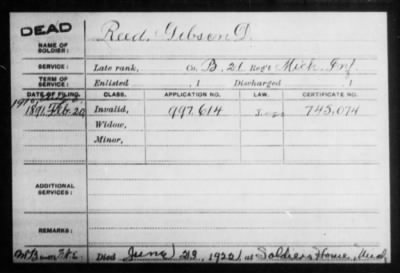 DEAD
NAME OF SOLDIER: Reed, Gibson D.
SERVICE: Late rank, Co. B, 21 Reg't Mich. Inf.
TERM OF SERVICE: Enlisted , 1 Discharged , 1
DATE OF FILING. CLASS. APPLICATION NO. LAW. CERTIFICATE NO.
1891 Feb 20 Invalid, 997,614 745,074
Widow,
Minor,
ADDITIONAL SERVICES:
REMARKS:
Died June 1922, at Soldiers Home, Mich.